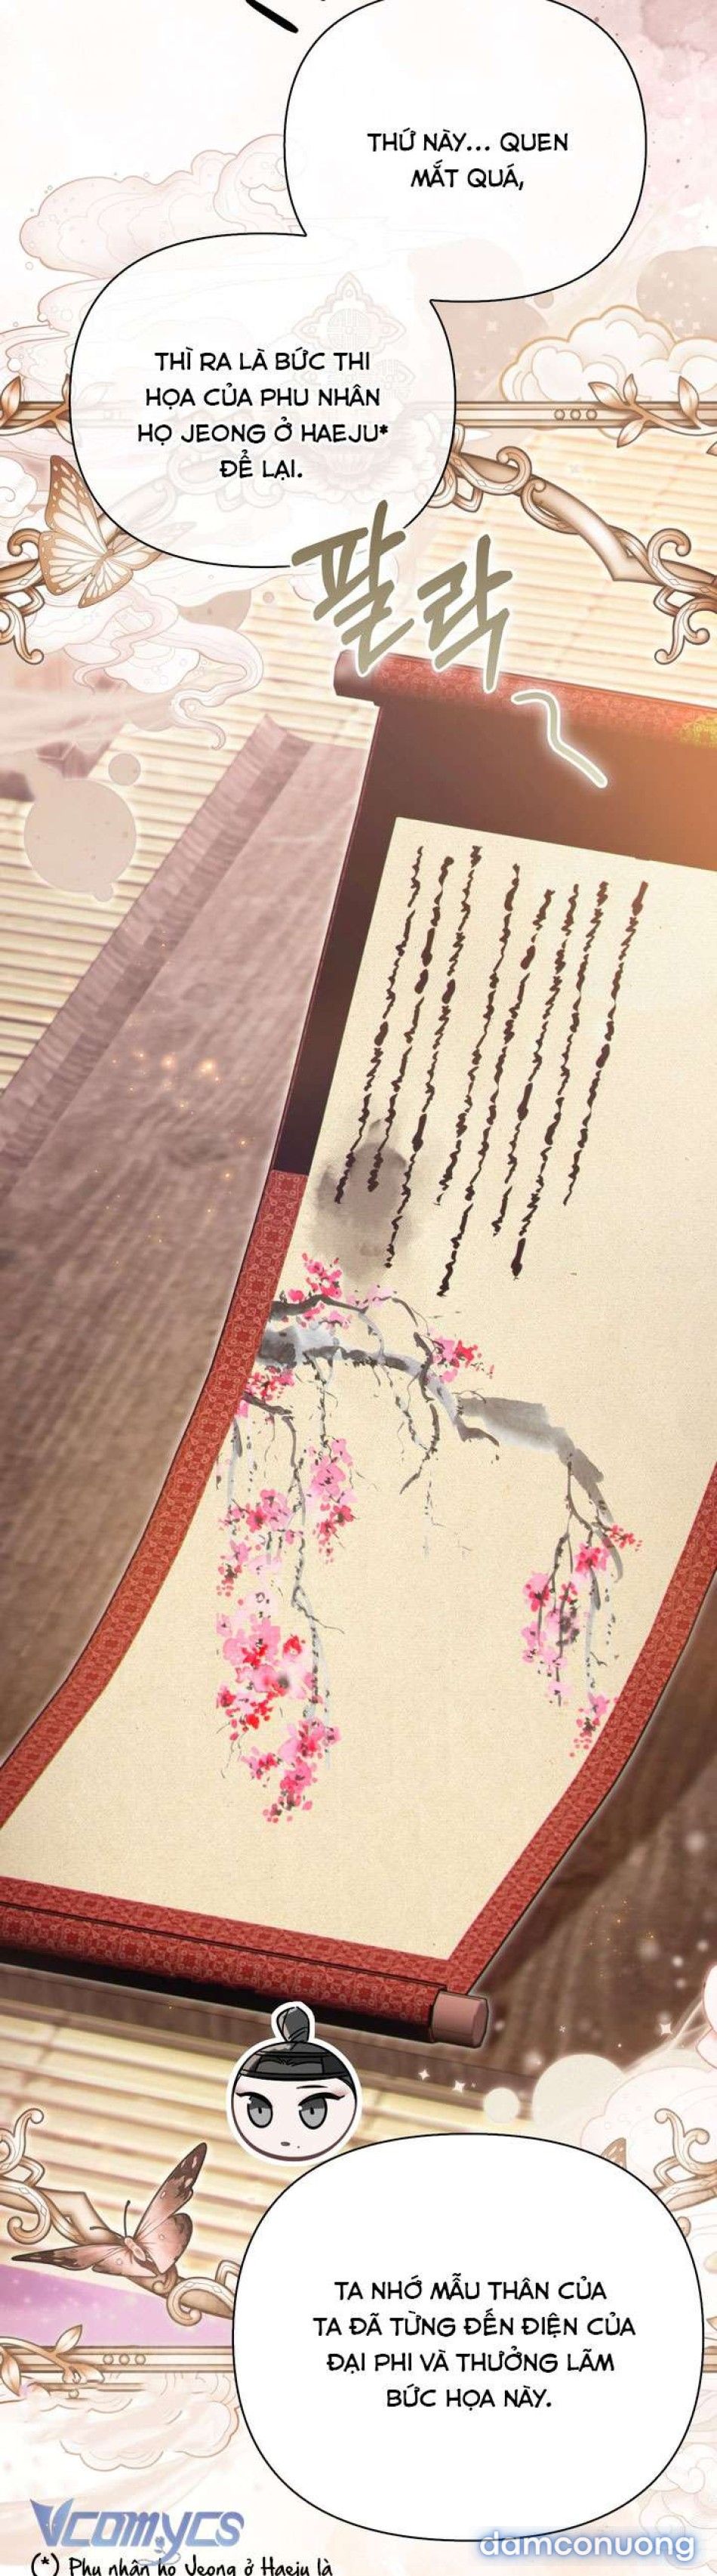 THỨ NÀY... QUEN
MẮT QUÁ,
THÌ RA LÀ BỨC THI
HỌA CỦA PHU NHÂN
HỌ JEONG Ở HAEJU*
ĐỂ LẠI.
팔락
TA NHỚ MẪU THÂN CỦA
TA ĐÃ TỪNG ĐẾN ĐIỆN CỦA
ĐẠI PHI VÀ THƯỞNG LÃM
BỨC HỌA NÀY.
VCOMYCS
damconuong
(*) Phu nhân họ Jeong ở Haeju là